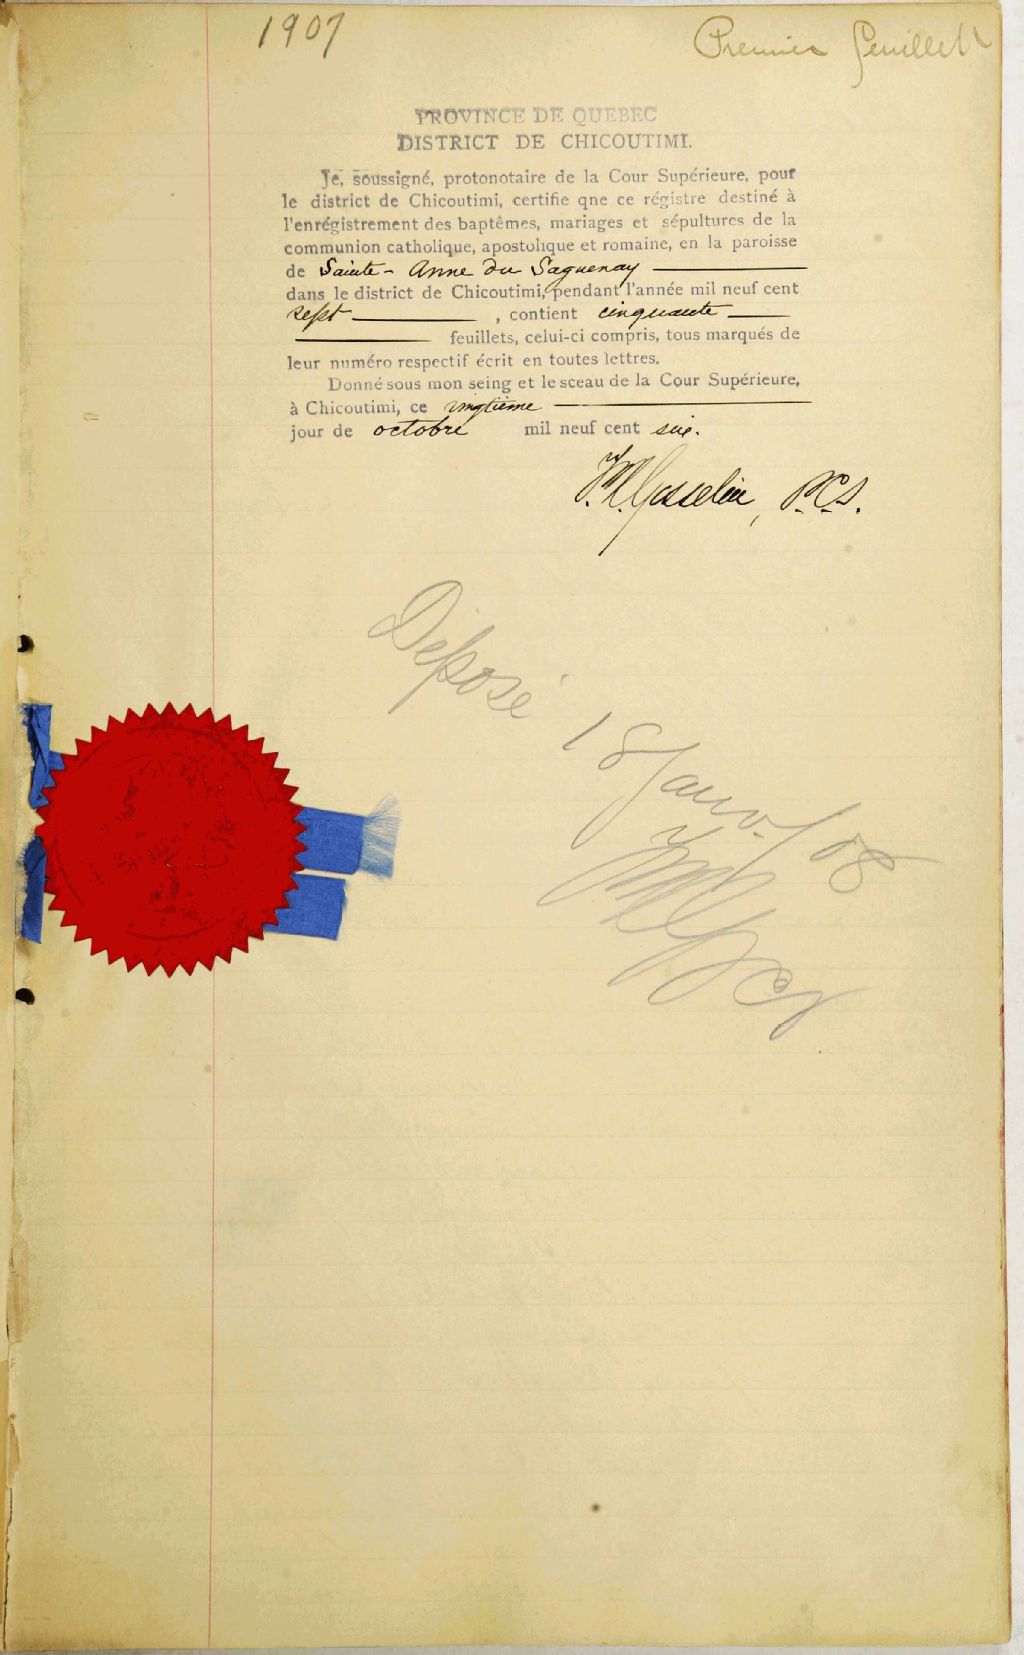 1907
Premier feuillet
PROVINCE DE QUEBEC
DISTRICT DE CHICOUTIMI.
Je, soussigné, protonotaire de la Cour Supérieure, pour
le district de Chicoutimi, certifie qne ce régistre destiné à
l'enrégistrement des baptêmes, mariages et sépultures de la
communion catholique, apostolique et romaine, en la paroisse
de Sainte-Anne du Saguenay
dans le district de Chicoutimi, pendant l'année mil neuf cent
sept, contient cinquante
feuillets, celui-ci compris, tous marqués de
leur numéro respectif écrit en toutes lettres.
Donné sous mon seing et le sceau de la Cour Supérieure,
à Chicoutimi, ce vingtième
jour de octobre mil neuf cent six.
Gosselin, P.C.S.
Déposé 18 Janv./08